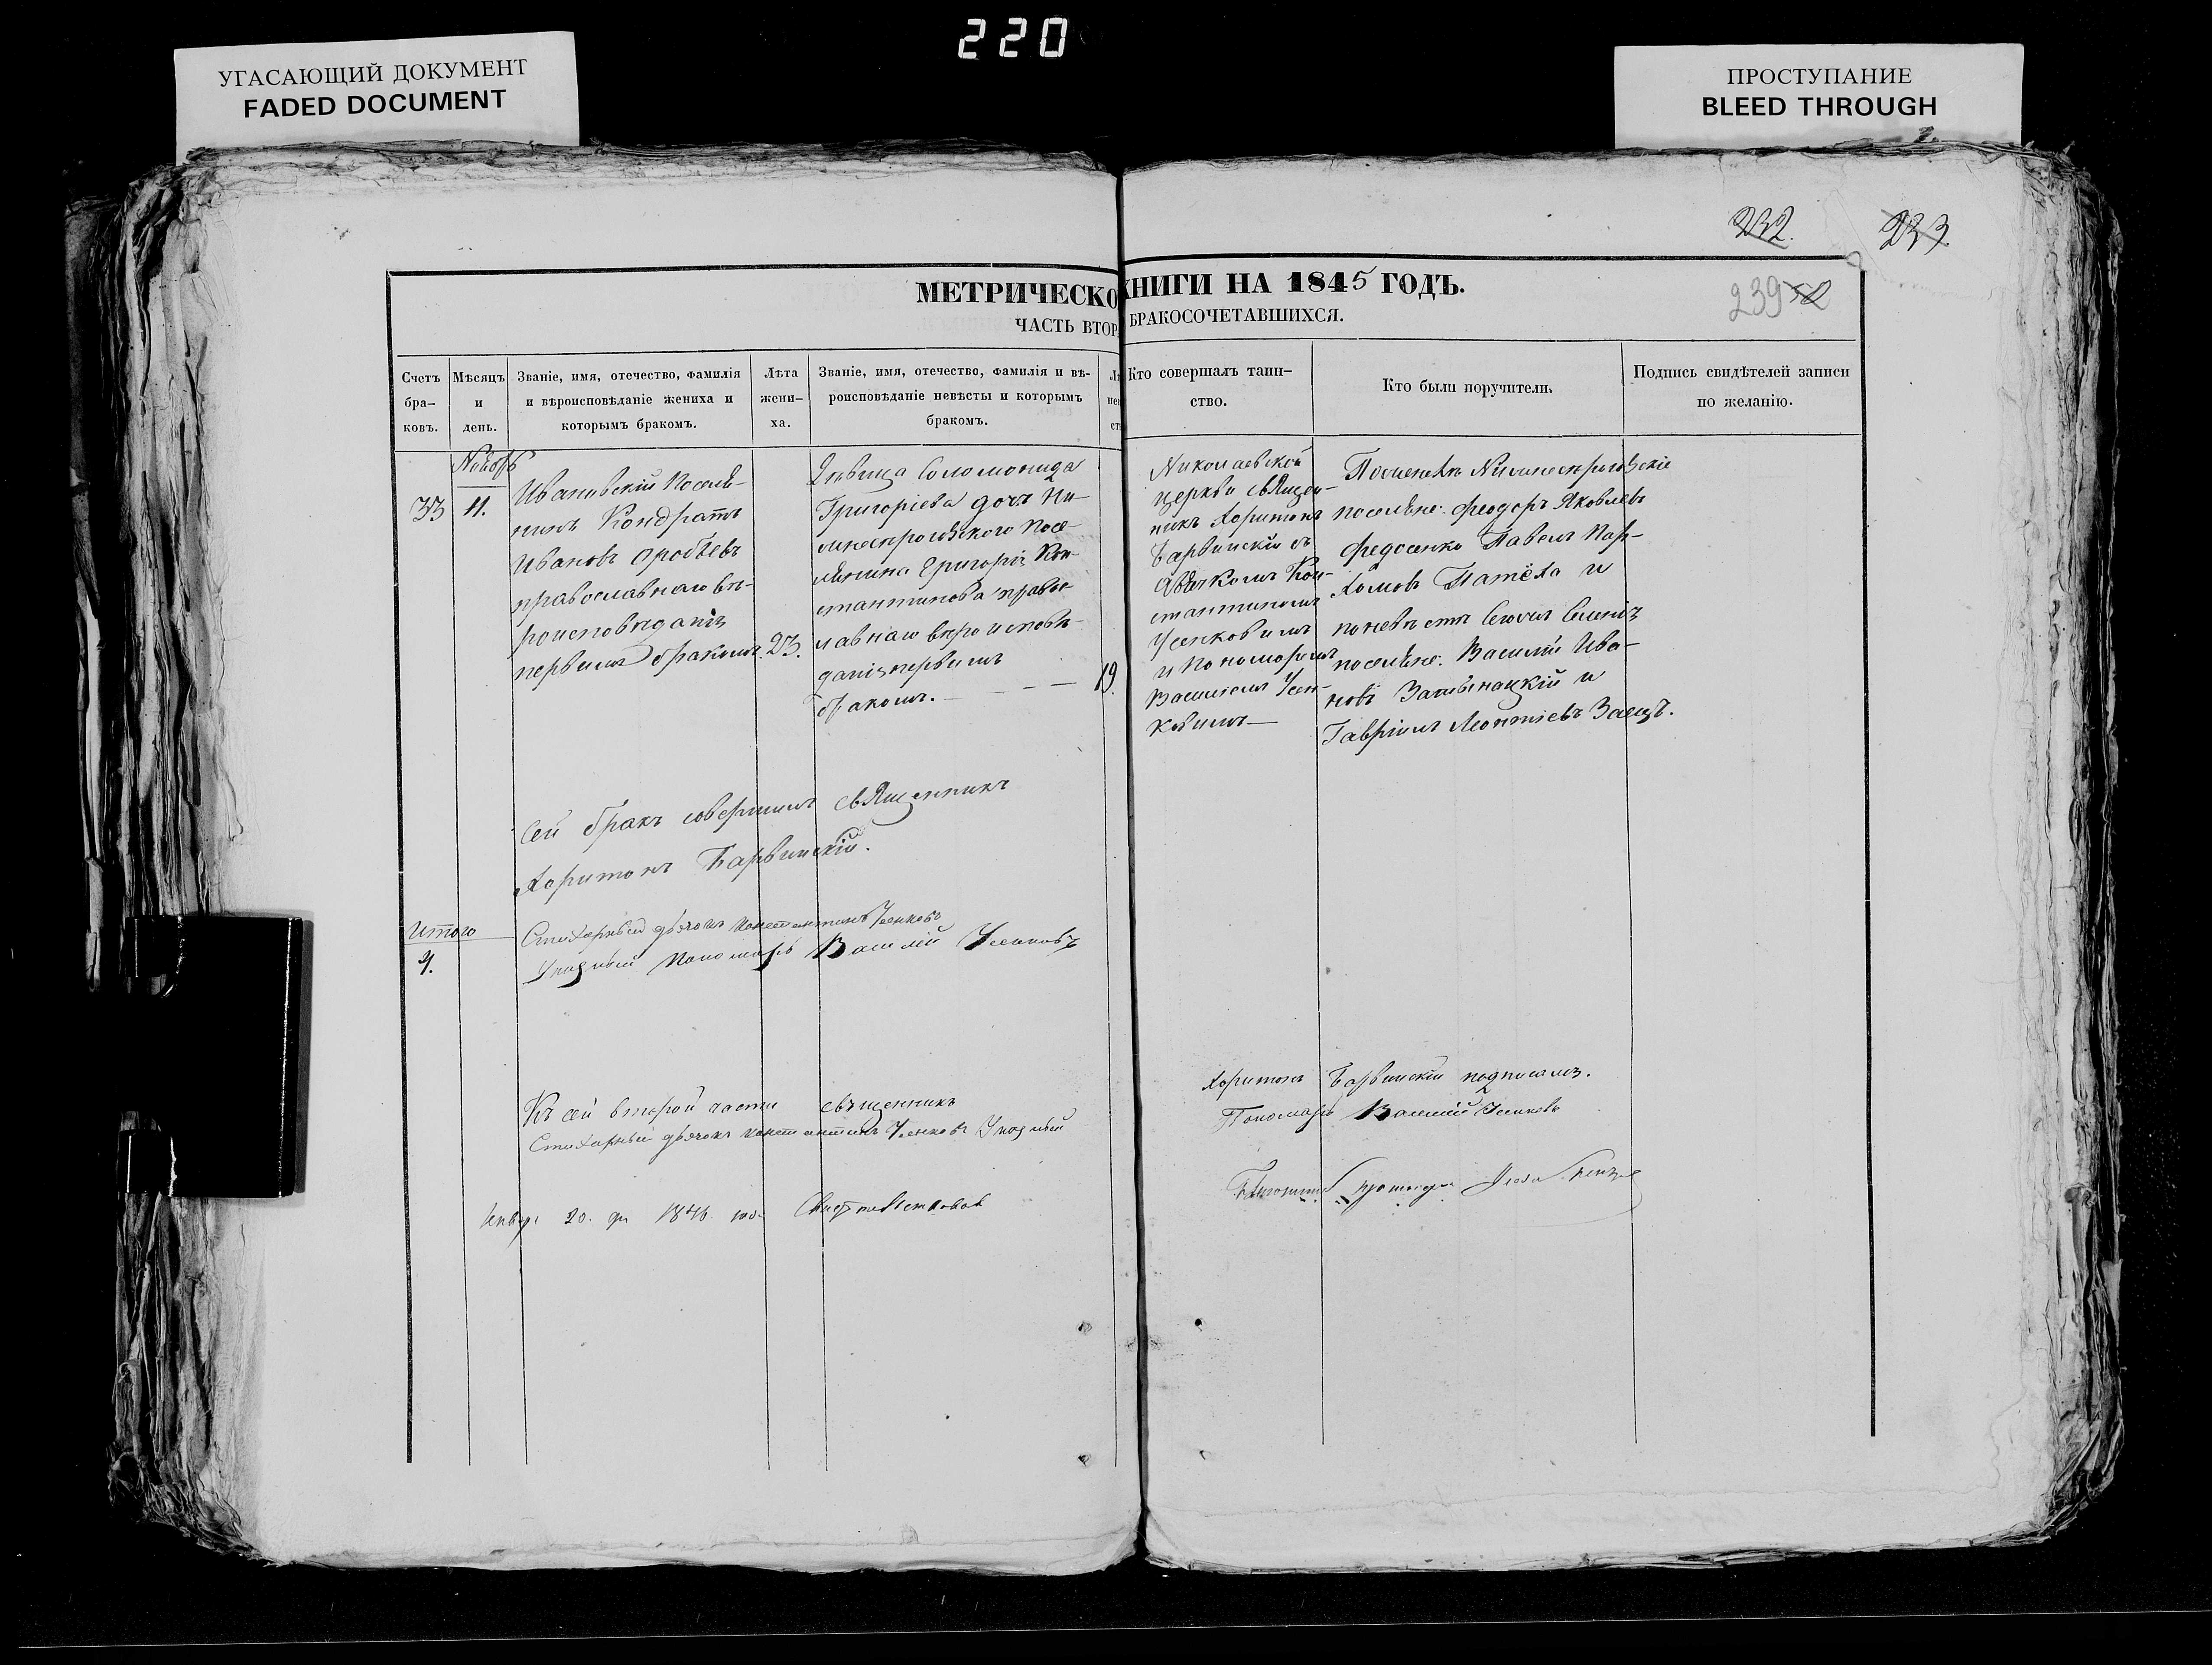 220
УГАСАЮЩИЙ ДОКУМЕНТ
FADED DOCUMENT
ПРОСТУПАНИЕ
BLEED THROUGH
232.
233
239
МЕТРИЧЕСКО КНИГИ НА 1845 ГОДЪ.
ЧАСТЬ ВТОР БРАКОСОЧЕТАВШИХСЯ.
Счетъ
бра-
ковъ.
Мѣсяцъ
и
день.
Званіе, имя, отечество, фамилія
и вѣроисповѣданіе жениха и
которымъ бракомъ.
Лѣта
жени-
ха.
Званіе, имя, отечество, фамилія и вѣ-
роисповѣданіе невѣсты и которымъ
бракомъ.
Кто совершалъ таин-
ство.
Кто были поручители.
Подпись свидѣтелей записи
по желанію.
33
Ноябрь
11.
Ивановскій Поселѣ-
нинъ Кондратъ
Ивановъ
православнаго вѣ-
роисповѣданія
первымъ бракомъ.
23.
Дѣвица Соломонида
Григоріева дочь Ни-
Посе-
лянина Григорія Кон-
стантинова право-
лавнаго вѣроисповѣ-
данія первымъ
бракомъ.
19.
Николаевской
церкви Священ-
никъ Харитонъ
Барвинскій съ
Дьячкомъ Кон-
стантиномъ
Усенковымъ
и Пономаремъ
Василіемъ Усен-
ковымъ
По женихѣ
поселяне: Феодоръ Яковлевъ
Федосенко Павелъ Пар-
хомовъ Патёха и
по невѣстѣ
поселяне: Василій Ива-
новъ и
Гавріилъ Леонтіевъ Заецъ.
Сей бракъ совершилъ Священникъ
Харитонъ Барвинскій.
Стихарный дьячокъ Константинъ Усенковъ
Указный Пономарь Василій Усенковъ
Итого
Къ сей второй части священникъ Харитонъ Барвинскій подписалъ.
Стихарный дьячокъ Константинъ Усенковъ Указный Пономарь Василій Усенковъ
20. 1846